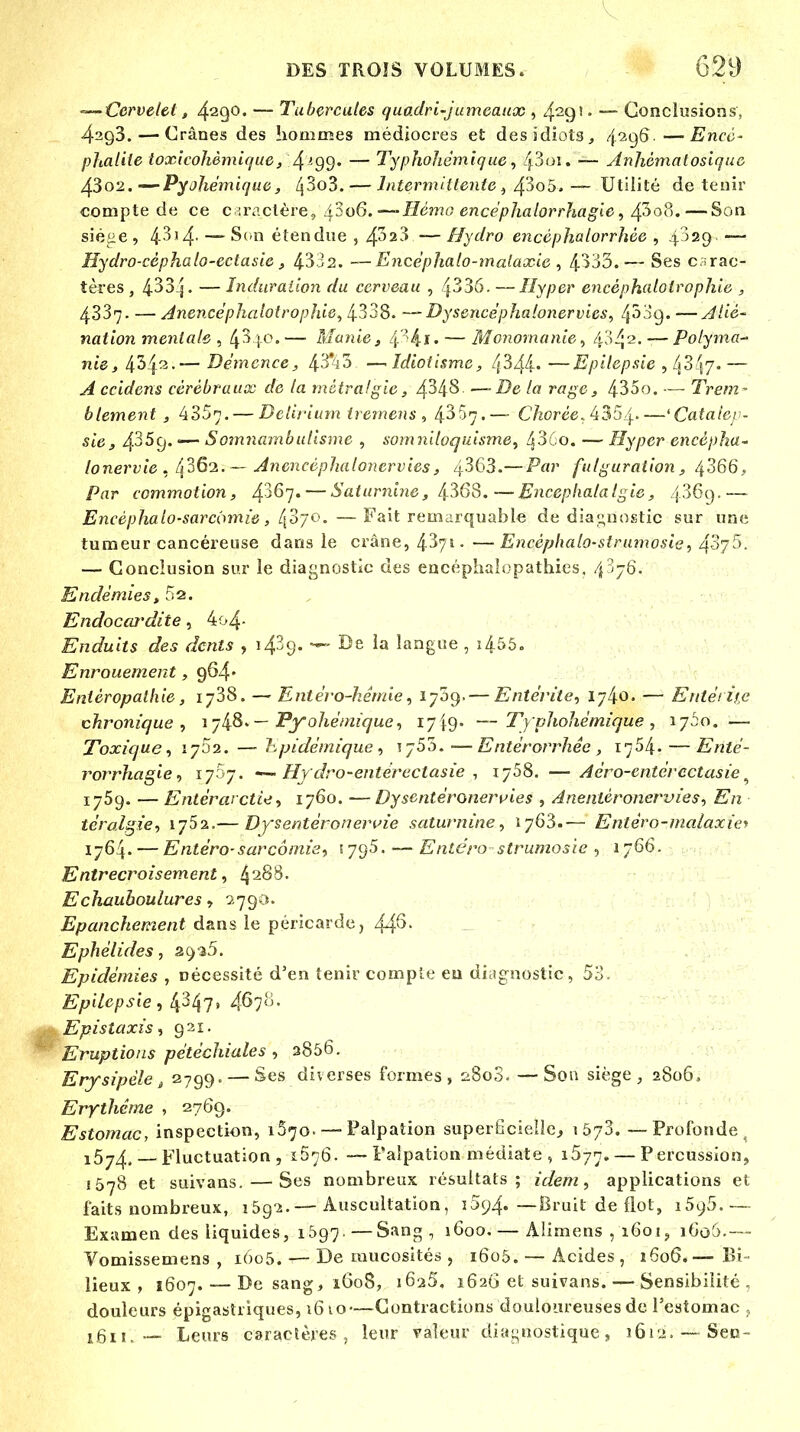 DES TROIS VOLUMES. 629
— Cervelet, 4290. — Tubercules quadri-jumeaux, 4291. — Conclusions,
4293. — Crânes des hommes médiocres et des idiots, 4296. — Encé-
phalite toxicohèmique, 4299. — Typhohémique, 4301. — Anhématosique
4302. — Pyohémique, 4303. — Intermittente, 4305. — Utilité de tenir
compte de ce caractère, 4306. — Hémo encéphalorrhagie, 4308. — Son
siége, 4314. — Son étendue, 4323 — Hydro encéphalorrhée, 4329. —
Hydro-céphalo-ectasie, 4332. — Encéphalo-malaxie, 4333. — Ses carac-
tères, 4334. — Induration du cerveau, 4336. — Hyper encéphalotrophie,
4337. — Anencéphalotrophie, 4338. — Dysencéphalonervies, 4339. — Alié-
nation mentale, 4340. — Manie, 4341. — Monomanie, 4342. — Polyma-
nie, 4342. — Démence, 4343 — Idiotisme, 4344. — Epilepsie, 4347. —
Accidens cérébraux de la métralgie, 4348 — De la rage, 4350. — Trem-
blement, 4357. — Delirium tremens, 4357. — Chorée, 4354. — Catalep-
sie, 4359. — Somnambulisme, somniloquisme, 4360. — Hyper encépha-
lonervie, 4362. — Anencéphalonervies, 4363. — Par fulguration, 4366,
Par commotion, 4367. — Saturnine, 4368. — Encephalalgie, 4369. —
Encéphalo-sarcomie, 4370. — Fait remarquable de diagnostic sur une
tumeur cancéreuse dans le crâne, 4371. — Encéphalo-strumosie, 4375.
— Conclusion sur le diagnostic des encéphalopathies, 4376.
Endémies, 52.
Endocardite, 404.
Enduits des dents, 1439. — De la langue, 1455.
Enrouement, 964.
Entéropathie, 1738. — Entéro-hémie, 1739. — Entérite, 1740. — Entérite
chronique, 1748. — Pyohémique, 1749. — Typhohémique, 1750. —
Toxique, 1752. — Epidémique, 1753. — Entérorrhée, 1754. — Enté-
rorrhagie, 1757. — Hydro-entérectasie, 1758. — Aéro-entérectasie,
1759. — Entérarctie, 1760. — Dysentéronervies, Anentéronervies, En
téralgie, 1752. — Dysentéronervie saturnine, 1763. — Entéro-malaxie,
1764. — Entéro-sarcômie, 1795. — Entéro strumosie, 1766.
Entrecroisement, 4288.
Echauboulures, 2790.
Epanchement dans le péricarde, 446.
Ephélides, 2925.
Epidémies, nécessité d'en tenir compte en diagnostic, 53.
Epilepsie, 4347, 4678.
Epistaxis, 921.
Eruptions pétéchiales, 2856.
Erysipèle, 2799. — Ses diverses formes, 2803. — Son siège, 2806.
Erythême, 2769.
Estomac, inspection, 1570. — Palpation superficielle, 1573. — Profonde,
1574. — Fluctuation, 1576. — Palpation médiate, 1577. — Percussion,
1578 et suivans. — Ses nombreux résultats; idem, applications et
faits nombreux, 1592. — Auscultation, 1594. — Bruit de flot, 1595. —
Examen des liquides, 1597. — Sang, 1600. — Alimens, 1601, 1606. —
Vomissemens, 1605. — De mucosités, 1605. — Acides, 1606. — Bi-
lieux, 1607. — De sang, 1608, 1625, 1626 et suivans. — Sensibilité,
douleurs épigastriques, 1610 — Contractions douloureuses de l'estomac,
1611. — Leurs caractères, leur valeur diagnostique, 1612. — Sen-